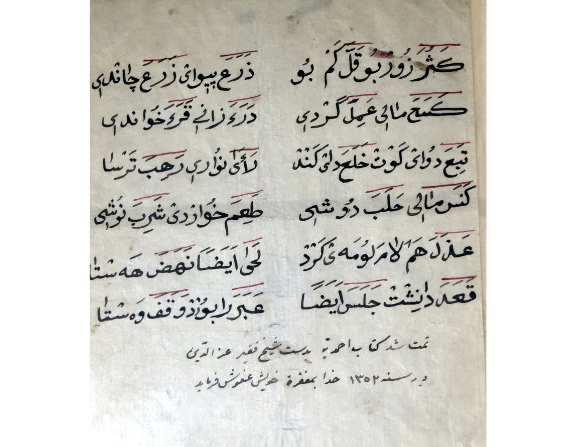 كَثُرَ زُوْر بُو قَلَّ كَمْ بُو ذَرَعَ پیوای زَرَعَ چاندی
كَسَحَ مالی عَمِلَ كردی دَرَءَ زانی قَرَءَ خواندی
تَبِعَ دوای كَوتْ خَلَعَ دای كَندْ رَأیٰ نُواری رَهِبَ تَرسا
كَنَسَ مالی حَلَبَ دوشی طَعِمَ خواردی شَرِبَ نَوُشی
عَذَلَ هَم لامَ لومه ی كَردْ لَحیٰ اَیضًا نَهَضَ هه ستا
قَعَدَ دانِشت جَلَسَ اَیضًا عَبَرَ رابوُردْ وَقَفَ وَه ستا
تمت شد كتاب احمدیة بدست شیخ فقیر عزالدین
در سنه ١٣٥٢ خدا بمغفرة خویش عفوش فرماید